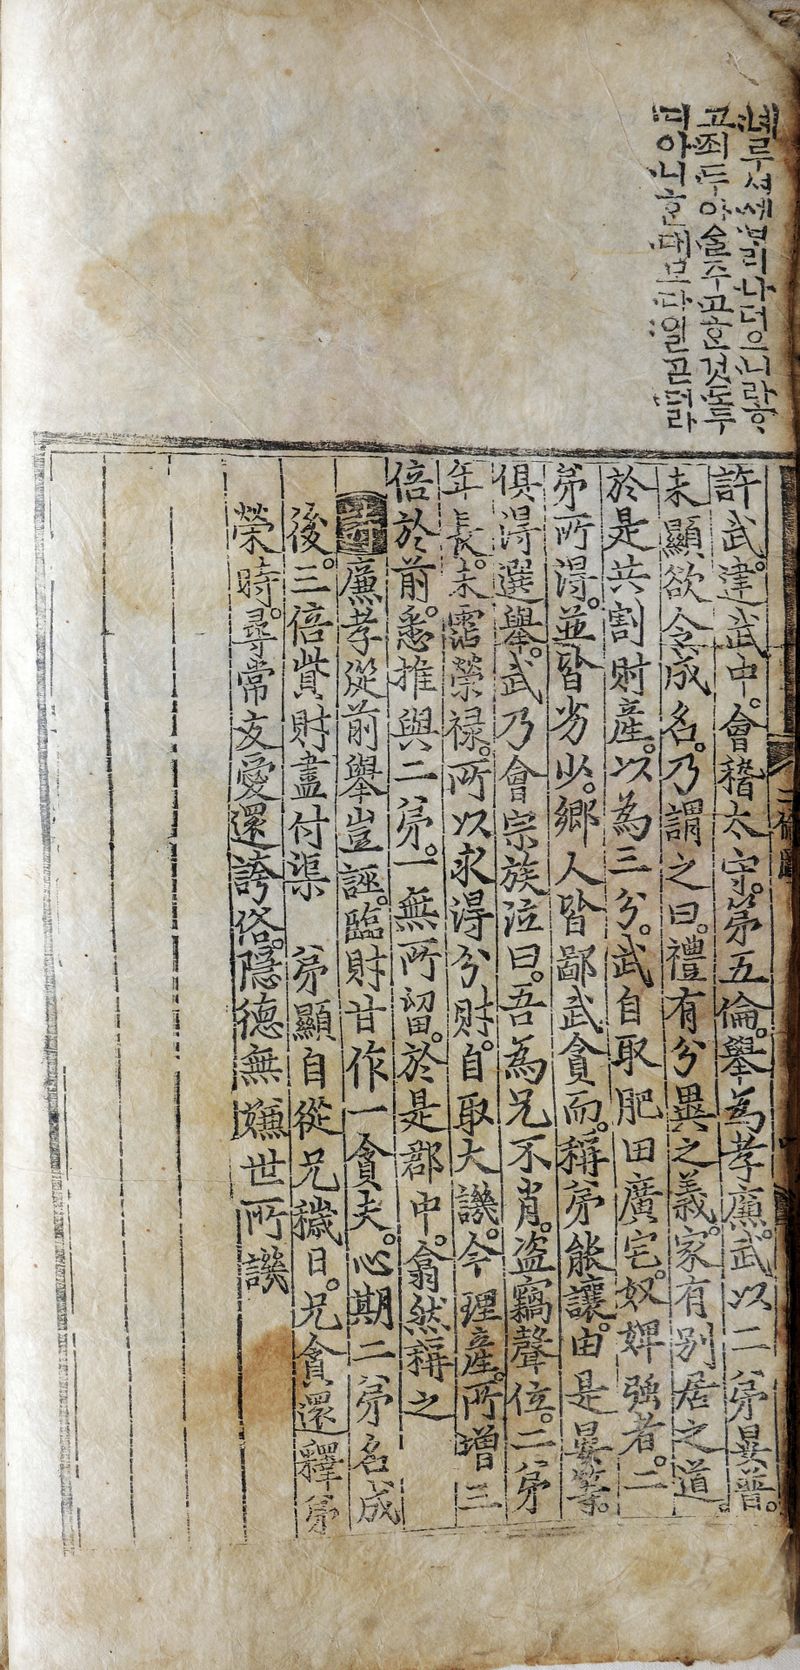 녜루셔셰널리나더으니라ᄒᆞ
고죄두아ᅀᆞᆯ주고ᄒᆞᆫ것도두
디아니ᄒᆞᆫ대모다일ᄏᆞᆮ더라
二倫圖
許武。建武中。會稽太守。第五倫。舉爲孝廉。武以二弟晏普。
未顯欲令成名。乃謂之曰。禮有分異之義。家有別居之道
於是共割財產。以爲三分。武自取肥田廣宅。奴婢強者。二
弟所得。並皆劣少。鄉人皆鄙武貪而。稱弟能讓。由是晏等。
俱得選舉。武乃會宗族泣曰。吾爲兄不肖。盜竊聲位。二弟
年長。未霑榮祿。所以求得分財。自取大譏。今理產。所增三
倍於前。悉推與二弟。一無所留。於是郡中。翕然稱之
詩 廉孝從前舉豈誣。臨財甘作一貪夫。心期二弟名成
後。三倍貲財盡付渠 弟顯自從兄穢日。兄貪還釋弟
榮時。尋常友愛還誇俗。隱德無嫌世所譏